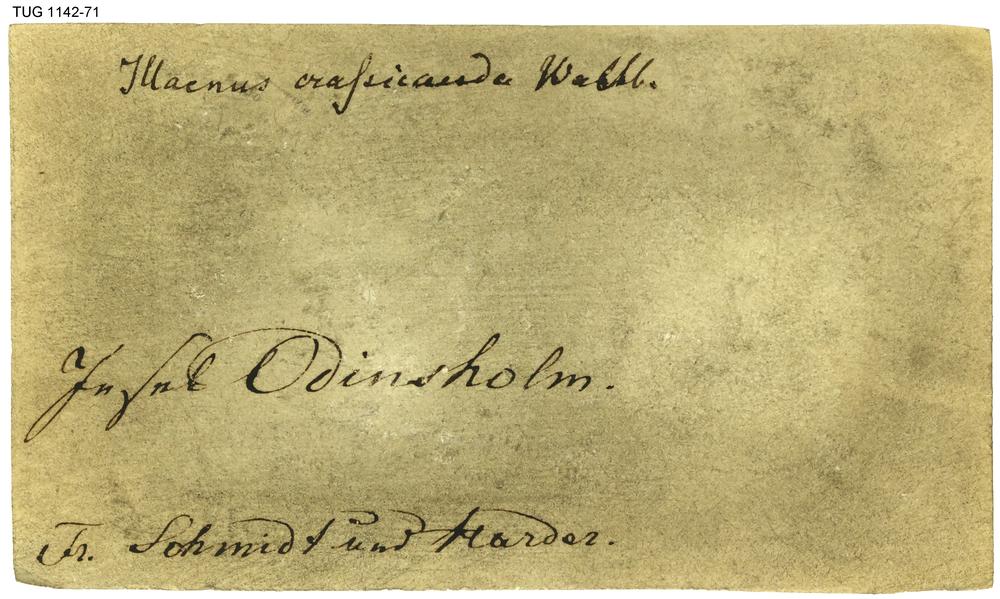 TUG 1142-71
Illaenus crassicauda Wahlb.
Insel Odinsholm.
Fr. Schmidt und Harder.